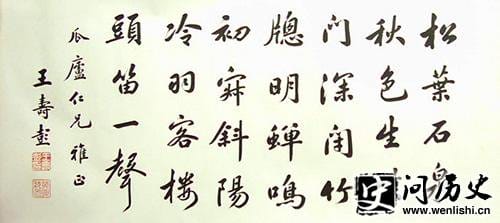 松葉石泉
秋色生
門深閉竹
牕明蟬鳴
初斜陽
冷羽客樓
頭笛一聲
瓜廬仁兄雅正
王壽彭
史问历史
www.wenlishi.cn